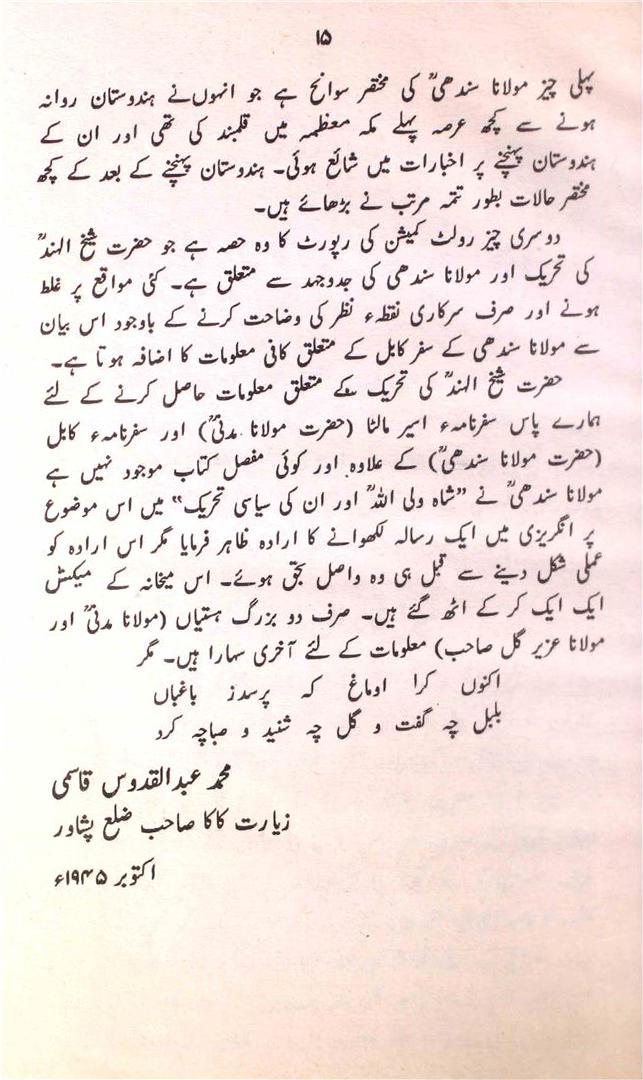 ۱۵
پہلی چیز مولانا سندھیؒ کی مختصر سوانح ہے جو انہوں نے ہندوستان روانہ
ہونے سے کچھ عرصہ پہلے مکہ معظمہ میں قلمبند کی تھی اور ان کے
ہندوستان پہنچنے پر اخبارات میں شائع ہوئی۔ ہندوستان پہنچنے کے بعد کے کچھ
مختصر حالات بطور تتمہ مرتب نے بڑھائے ہیں۔
دوسری چیز رولٹ کمیشن کی رپورٹ کا وہ حصہ ہے جو حضرت شیخ الہندؒ
کی تحریک اور مولانا سندھی کی جدوجہد سے متعلق ہے۔ کئی مواقع پر غلط
ہونے اور صرف سرکاری نقطہء نظر کی وضاحت کرنے کے باوجود اس بیان
سے مولانا سندھی کے سفر کابل کے متعلق کافی معلومات کا اضافہ ہوتا ہے۔
حضرت شیخ الہندؒ کی تحریک کے متعلق معلومات حاصل کرنے کے لئے
ہمارے پاس سفرنامہء اسیر مالٹا (حضرت مولانا مدنیؒ) اور سفرنامہء کابل
(حضرت مولانا سندھیؒ) کے علاوہ اور کوئی مفصل کتاب موجود نہیں ہے
مولانا سندھیؒ نے “شاہ ولی اللہؒ اور ان کی سیاسی تحریک” میں اس موضوع
پر انگریزی میں ایک رسالہ لکھوانے کا ارادہ ظاہر فرمایا مگر اس ارادہ کو
عملی شکل دینے سے قبل ہی وہ واصل بحق ہوئے۔ اس میخانہ کے میکش
ایک ایک کر کے اٹھ گئے ہیں۔ صرف دو بزرگ ہستیاں (مولانا مدنیؒ اور
مولانا عزیر گل صاحب) معلومات کے لئے آخری سہارا ہیں۔ مگر
اکنوں کرا اوماغ کہ پرسدز باغباں
بلبل چہ گفت و گل چہ شنید و صباچہ کرد
محمد عبدالقدوس قاسمی
زیارت کاکا صاحب ضلع پشاور
اکتوبر ۱۹۴۵ء